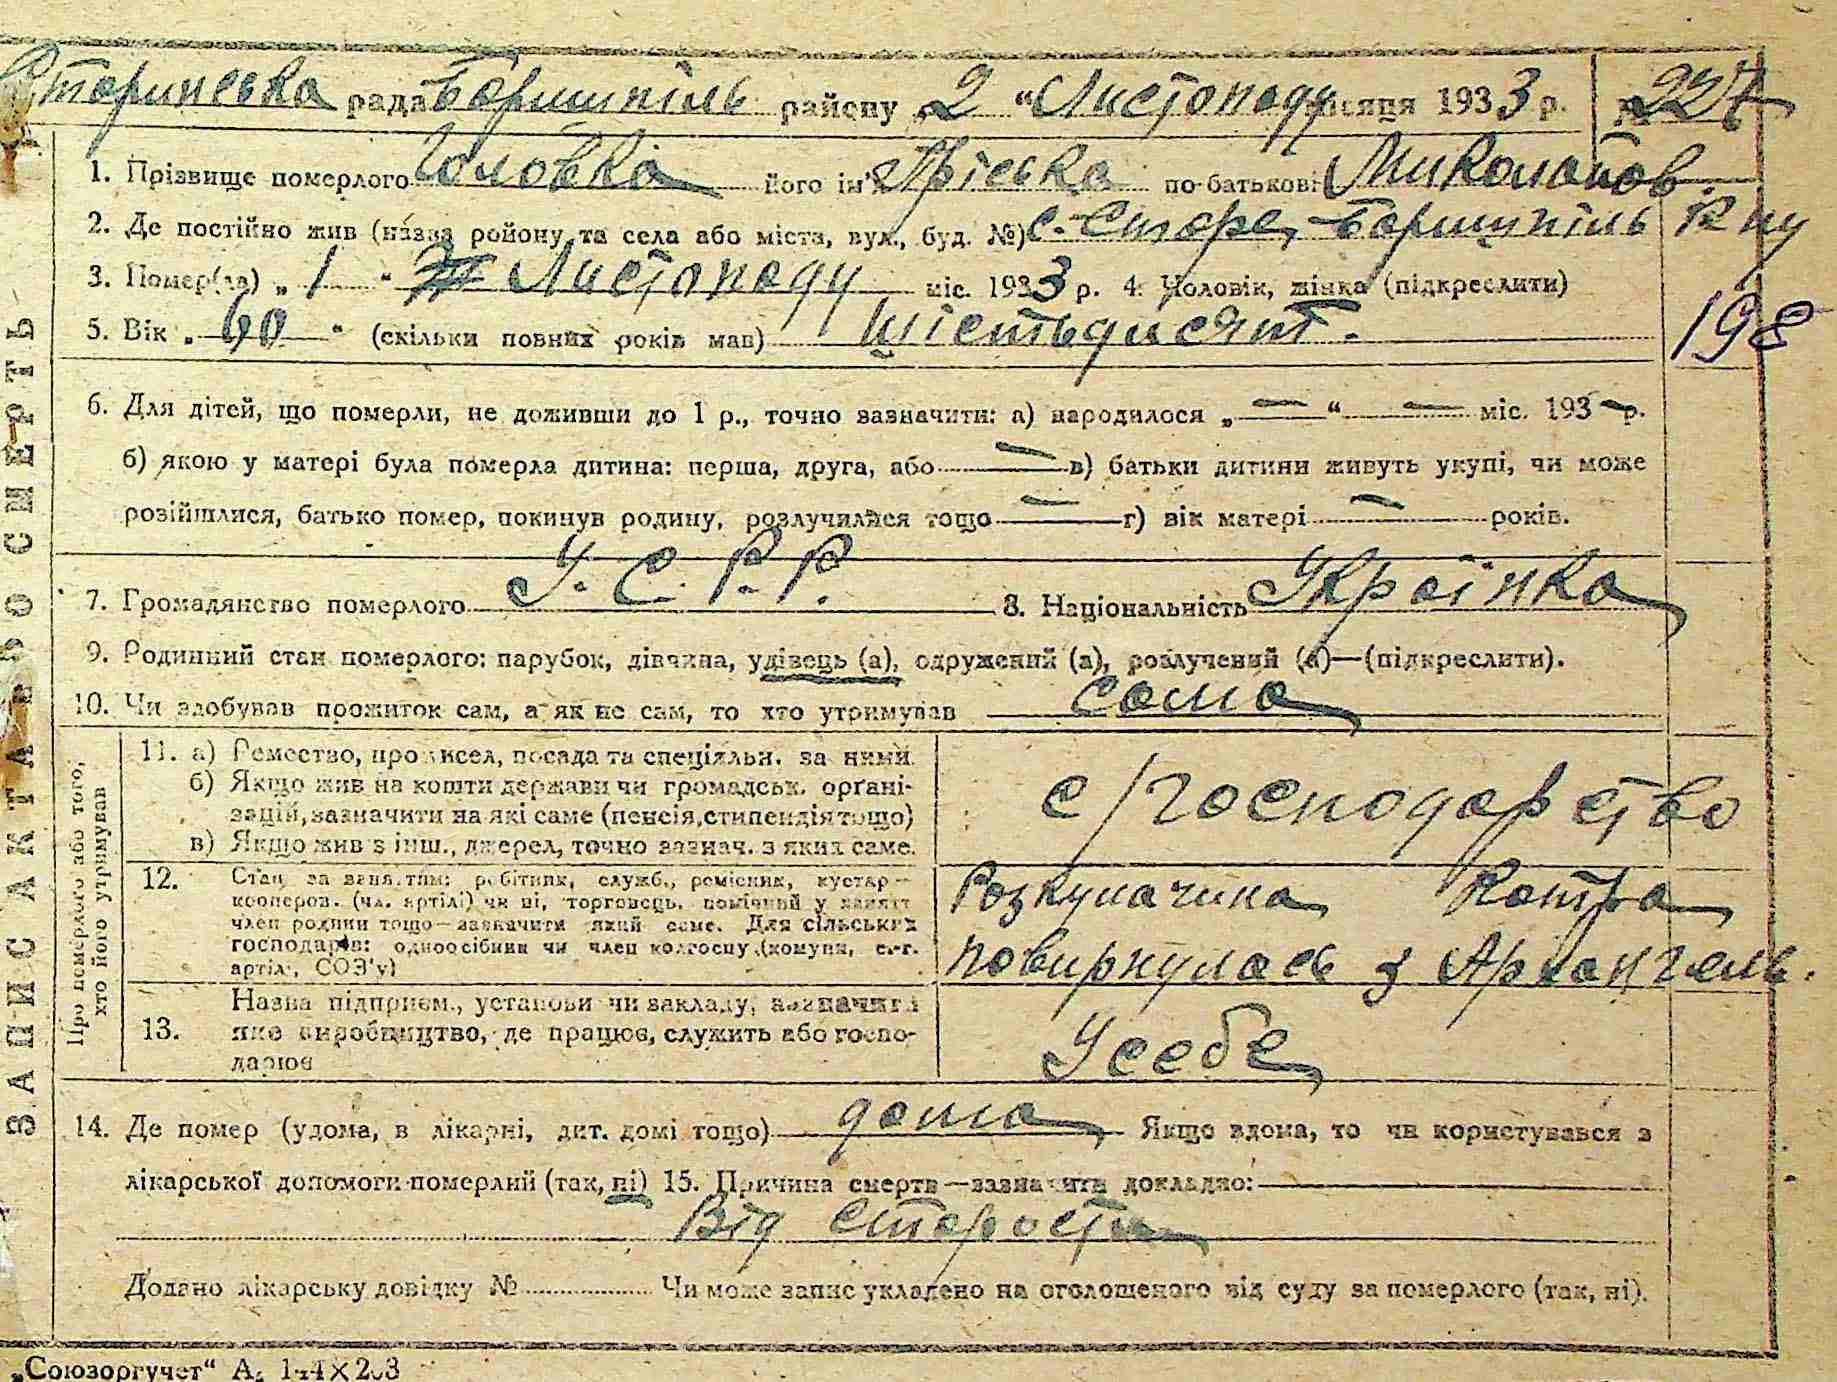 Старинська рада Боришпіль району „2“ Листопаду місяця 1933 р. № 227
1. Прізвище померлого Головка його ім'я Пріська по-батькові Миколаїов.
2. Де постійно жив (назва району та села або міста, вул., буд. №) с. Старе, Боришпіль Р ну
3. Помер(ла) „1“ Листопаду міс. 1933 р. 4. Чоловік, жінка (підкреслити)
5. Вік „60“ (скільки повних років мав) шістьдисят. 198
6. Для дітей, що померли, не доживши до 1 р., точно зазначити: а) народилося „—“ — міс. 193— р.
б) якою у матері була померла дитина: перша, друга, або — в) батьки дитини живуть укупі, чи може
розійшлися, батько помер, покинув родину, розлучилися тощо — г) вік матері — років.
7. Громадянство померлого У. С. Р. Р. 8. Національність Українка
9. Родинний стан померлого: парубок, дівчина, удівець (а), одружений (а), розлучений (а)—(підкреслити).
10. Чи здобував прожиток сам, а як не сам, то хто утримував сама
ЗАПИС АКТА ПРО СМЕРТЬ
Про померлого або того, хто його утримував
11. а) Ремество, промисел, посада та спеціяльн. за ними
б) Якщо жив на кошти держави чи громадськ. органі-
зацій, зазначити на які саме (пенсія, стипендія тощо)
в) Якщо жив з інш., джерел, точно зазнач. з яких саме.
с/господарство
12. Стан за занятим: робітник, служб., ремісник, кустар—
кооперов. (чл. артілі) чи ні, торговець, помічний у занятт
член родини тощо—зазначити який саме. Для сільських
господарів: одноосібник чи член колгоспу (комуни, с.-г.
артілі, СОЗ'у)
Розкулачина котра
повирнулась з Архангель.
13. Назва підприєм., установи чи закладу, зазначити
яке виробництво, де працює, служить або госпо-
дарює
У себе
14. Де помер (удома, в лікарні, дит. домі тощо) дома Якщо вдома, то чи користувався з
лікарської допомоги померлий (так, ні) 15. Причина смерти—зазначити докладно:
Від старости
Додано лікарську довідку № Чи може запис укладено на оголошеного від суду за померлого (так, ні).
„Союзоргучет“ А.